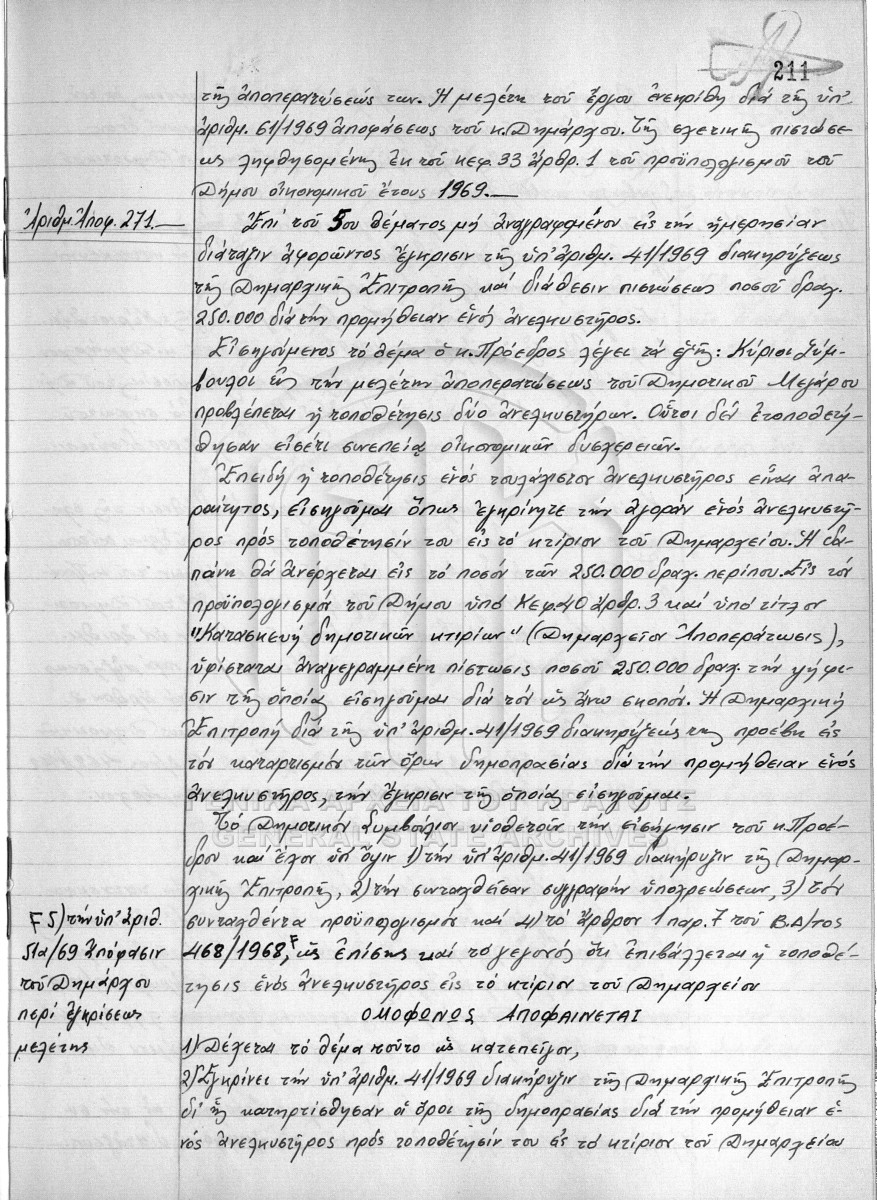 211
τῆς ἀποπερατώσεώς των. Ἡ μελέτη τοῦ ἔργου ἐνεκρίθη διά τῆς ὑπ'
ἀριθμ. 61/1969 ἀποφάσεως τοῦ κ. Δημάρχου. Τῆς σχετικῆς πιστώσε-
ως ληφθησομένης ἐκ τοῦ κεφ. 33 ἄρθρ. 1 τοῦ προϋπολογισμοῦ τοῦ
Δήμου οἰκονομικοῦ ἔτους 1969.—
Ἀριθμ. Ἀποφ. 271.—
Ἐπί τοῦ 5ου θέματος μή ἀναγραφομένου εἰς τήν ἡμερησίαν
διάταξιν ἀφορῶντος ἔγκρισιν τῆς ὑπ' ἀριθμ. 41/1969 διακηρύξεως
τῆς Δημαρχικῆς Ἐπιτροπῆς καί διάθεσιν πιστώσεως ποσοῦ δραχ.
250.000 διά τήν προμήθειαν ἑνός ἀνελκυστῆρος.
Εἰσηγούμενος τό θέμα ὁ κ. Πρόεδρος λέγει τά ἑξῆς: Κύριοι Σύμ-
βουλοι εἰς τήν μελέτην ἀποπερατώσεως τοῦ Δημοτικοῦ Μεγάρου
προβλέπεται ἡ τοποθέτησις δύο ἀνελκυστήρων. Οὗτοι δέν ἐτοποθετή-
θησαν εἰσέτι συνεπείᾳ οἰκονομικῶν δυσχερειῶν.
Ἐπειδή ἡ τοποθέτησις ἑνός τουλάχιστον ἀνελκυστῆρος εἶναι ἀπα-
ραίτητος, εἰσηγοῦμαι ὅπως ἐγκρίνητε τήν ἀγοράν ἑνός ἀνελκυστῆ-
ρος πρός τοποθέτησίν του εἰς τό κτίριον τοῦ Δημαρχείου. Ἡ δα-
πάνη θά ἀνέρχεται εἰς τό ποσόν τῶν 250.000 δραχ. περίπου. Εἰς τόν
προϋπολογισμόν τοῦ Δήμου ὑπό Κεφ. 40 ἄρθρ. 3 καί ὑπό τίτλον
"Κατασκευή δημοτικῶν κτιρίων" (Δημαρχεῖον Ἀποπεράτωσις),
ὑφίσταται ἀναγεγραμμένη πίστωσις ποσοῦ 250.000 δραχ. τήν ψήφι-
σιν τῆς ὁποίας εἰσηγοῦμαι διά τόν ὡς ἄνω σκοπόν. Ἡ Δημαρχική
Ἐπιτροπή διά τῆς ὑπ' ἀριθμ. 41/1969 διακηρύξεώς της προέβη εἰς
τόν καταρτισμόν τῶν ὅρων δημοπρασίας διά τήν προμήθειαν ἑνός
ἀνελκυστῆρος, τήν ἔγκρισιν τῆς ὁποίας εἰσηγοῦμαι.
Τό Δημοτικόν Συμβούλιον υἱοθετοῦν τήν εἰσήγησιν τοῦ κ. Προέ-
δρου καί ἔχον ὑπ' ὄψιν 1) τήν ὑπ' ἀριθμ. 41/1969 διακήρυξιν τῆς Δημαρ-
χικῆς Ἐπιτροπῆς, 2) τήν συνταχθεῖσαν συγγραφήν ὑποχρεώσεων, 3) τόν
συνταχθέντα προϋπολογισμόν καί 4) τό ἄρθρον 1 παρ. 7 τοῦ Β.Δ/τος
468/1968,Ϝ ὡς ἐπίσης καί τό γεγονός ὅτι ἐπιβάλλεται ἡ τοποθέ-
τησις ἑνός ἀνελκυστῆρος εἰς τό κτίριον τοῦ Δημαρχείου
Ϝ 5) τήν ὑπ' ἀριθ.
51α/69 ἀπόφασιν
τοῦ Δημάρχου
περί ἐγκρίσεως
μελέτης
ΟΜΟΦΩΝΩΣ ΑΠΟΦΑΙΝΕΤΑΙ
1) Δέχεται τό θέμα τοῦτο ὡς κατεπεῖγον,
2) Ἐγκρίνει τήν ὑπ' ἀριθμ. 41/1969 διακήρυξιν τῆς Δημαρχικῆς Ἐπιτροπῆς
δι' ἧς κατηρτίσθησαν οἱ ὅροι τῆς δημοπρασίας διά τήν προμήθειαν ἑ-
νός ἀνελκυστῆρος πρός τοποθέτησίν του εἰς τό κτίριον τοῦ Δημαρχείου
ΓΕΝΙΚΑ ΑΡΧΕΙΑ ΤΟΥ ΚΡΑΤΟΥΣ
GENERAL STATE ARCHIVES